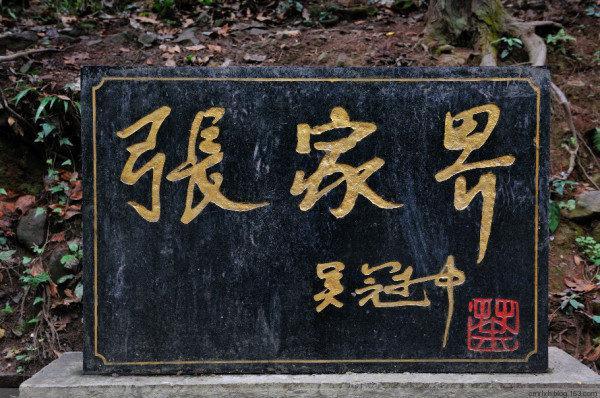 張家界
吴冠中
cmrlxh.blog.163.com